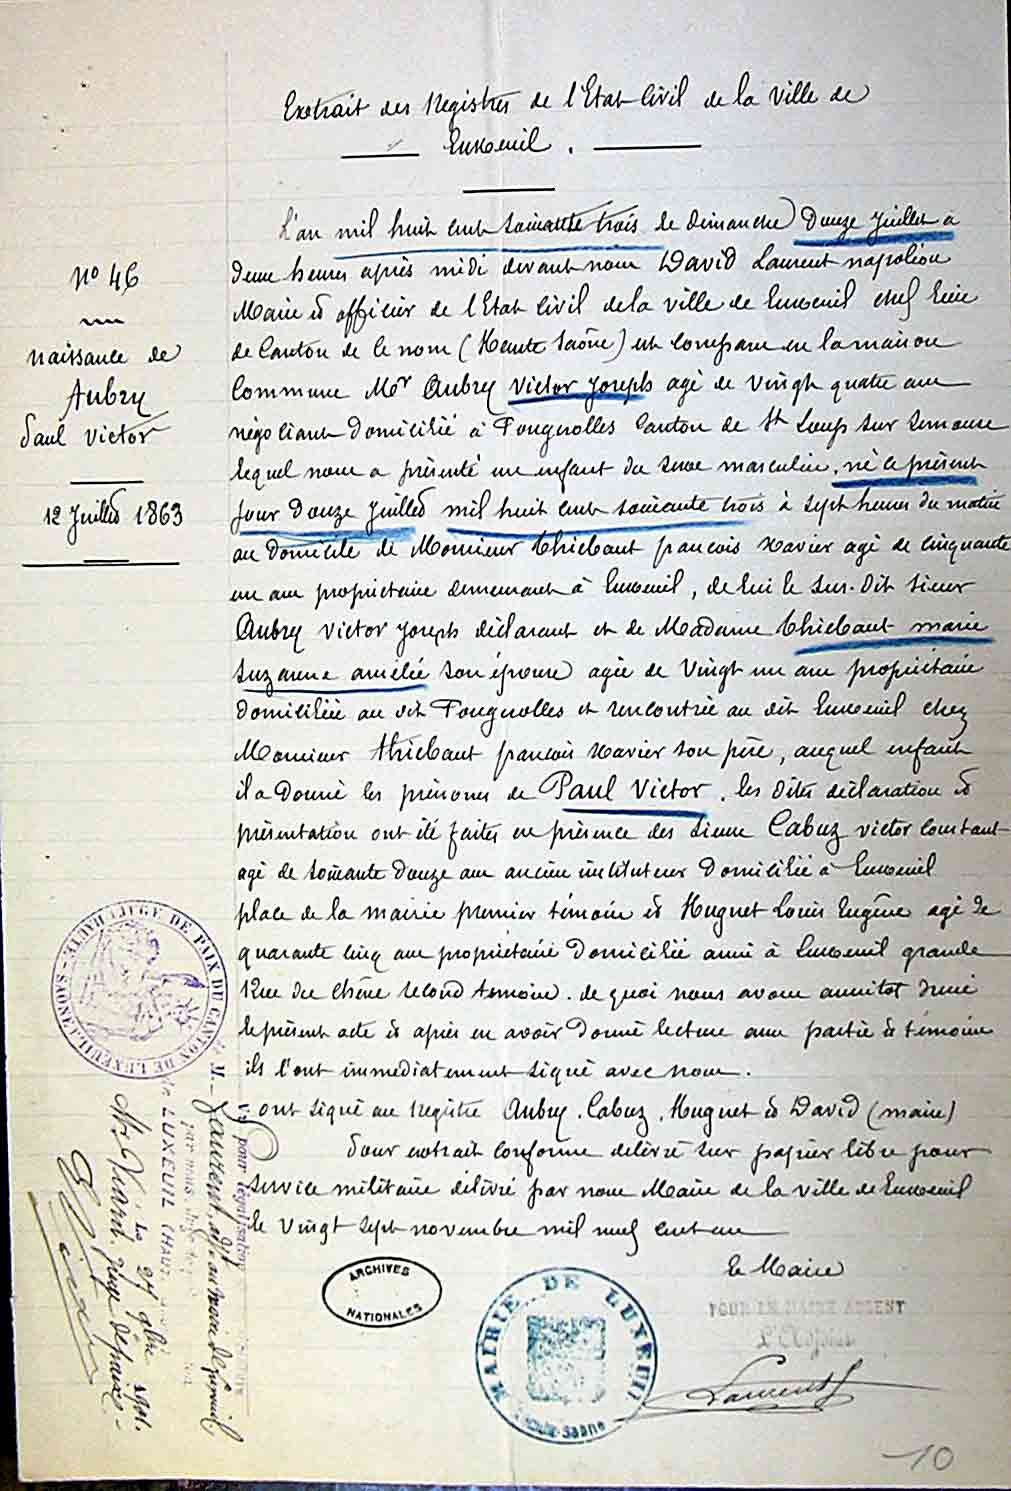 Extrait des Registres de l'Etat Civil de la Ville de
Luxeuil.
N° 46
naissance de
Aubry
Paul Victor
12 Juillet 1863
L'an mil huit cent soixante trois le dimanche douze Juillet à
deux heures après midi devant nous David Laurent napoléon
Maire et officier de l'Etat Civil de la ville de Luxeuil chef lieu
de Canton de ce nom (Haute Saône) est comparu en la maison
Commune Mr Aubry Victor Joseph agé de vingt quatre ans
négociant domicilié à Fougerolles Canton de St Loup sur Semouse
lequel nous a présenté un enfant du sexe masculin, né le présent
jour douze Juillet mil huit cent soixante trois à sept heures du matin
au domicile de Monsieur Thiebaut françois Xavier agé de cinquante
un ans propriétaire demeurant à Luxeuil, de lui le sus-dit sieur
Aubry Victor Joseph déclarant et de Madame Thiebaut marie
Suzanne amélie son épouse agée de vingt un ans propriétaire
domiciliée au dit Fougerolles et rencontrée au dit Luxeuil chez
Monsieur Thiebaut françois Xavier son père, auquel enfant
il a donné les prénoms de Paul Victor, les dites déclaration et
présentation ont été faites en présence des sieurs Cabuz victor Constant
agé de soixante douze ans ancien instituteur domicilié à Luxeuil
place de la mairie premier témoin et Huguet Louis Eugène agé de
quarante cinq ans propriétaire domicilié aussi à Luxeuil grande
Rue du Chêne second témoin. de quoi nous avons aussitot dressé
le présent acte et après en avoir donné lecture aux partie et témoins
ils l'ont immediatement signé avec nous.
ont signé au Registre Aubry. Cabuz, Huguet et David (maire)
Pour extrait conforme délivré sur papier libre pour
service militaire délivré par nous Maire de la ville de Luxeuil
le vingt sept novembre mil neuf cent un
le Maire
POUR LE MAIRE ABSENT
L'Adjoint
Laurent
JUSTICE DE PAIX DU CANTON DE LUXEUIL-LES-BAINS - HAUTE-SAONE
Vu pour légalisation
M. Laurent, adjt. au maire de Luxeuil,
par nous, Juge de
LUXEUIL (HAUTE
Le 27 9bre 1901.
Viard, juge de paix.
ARCHIVES
NATIONALES
MAIRIE DE LUXEUIL
Haute-Saône
10